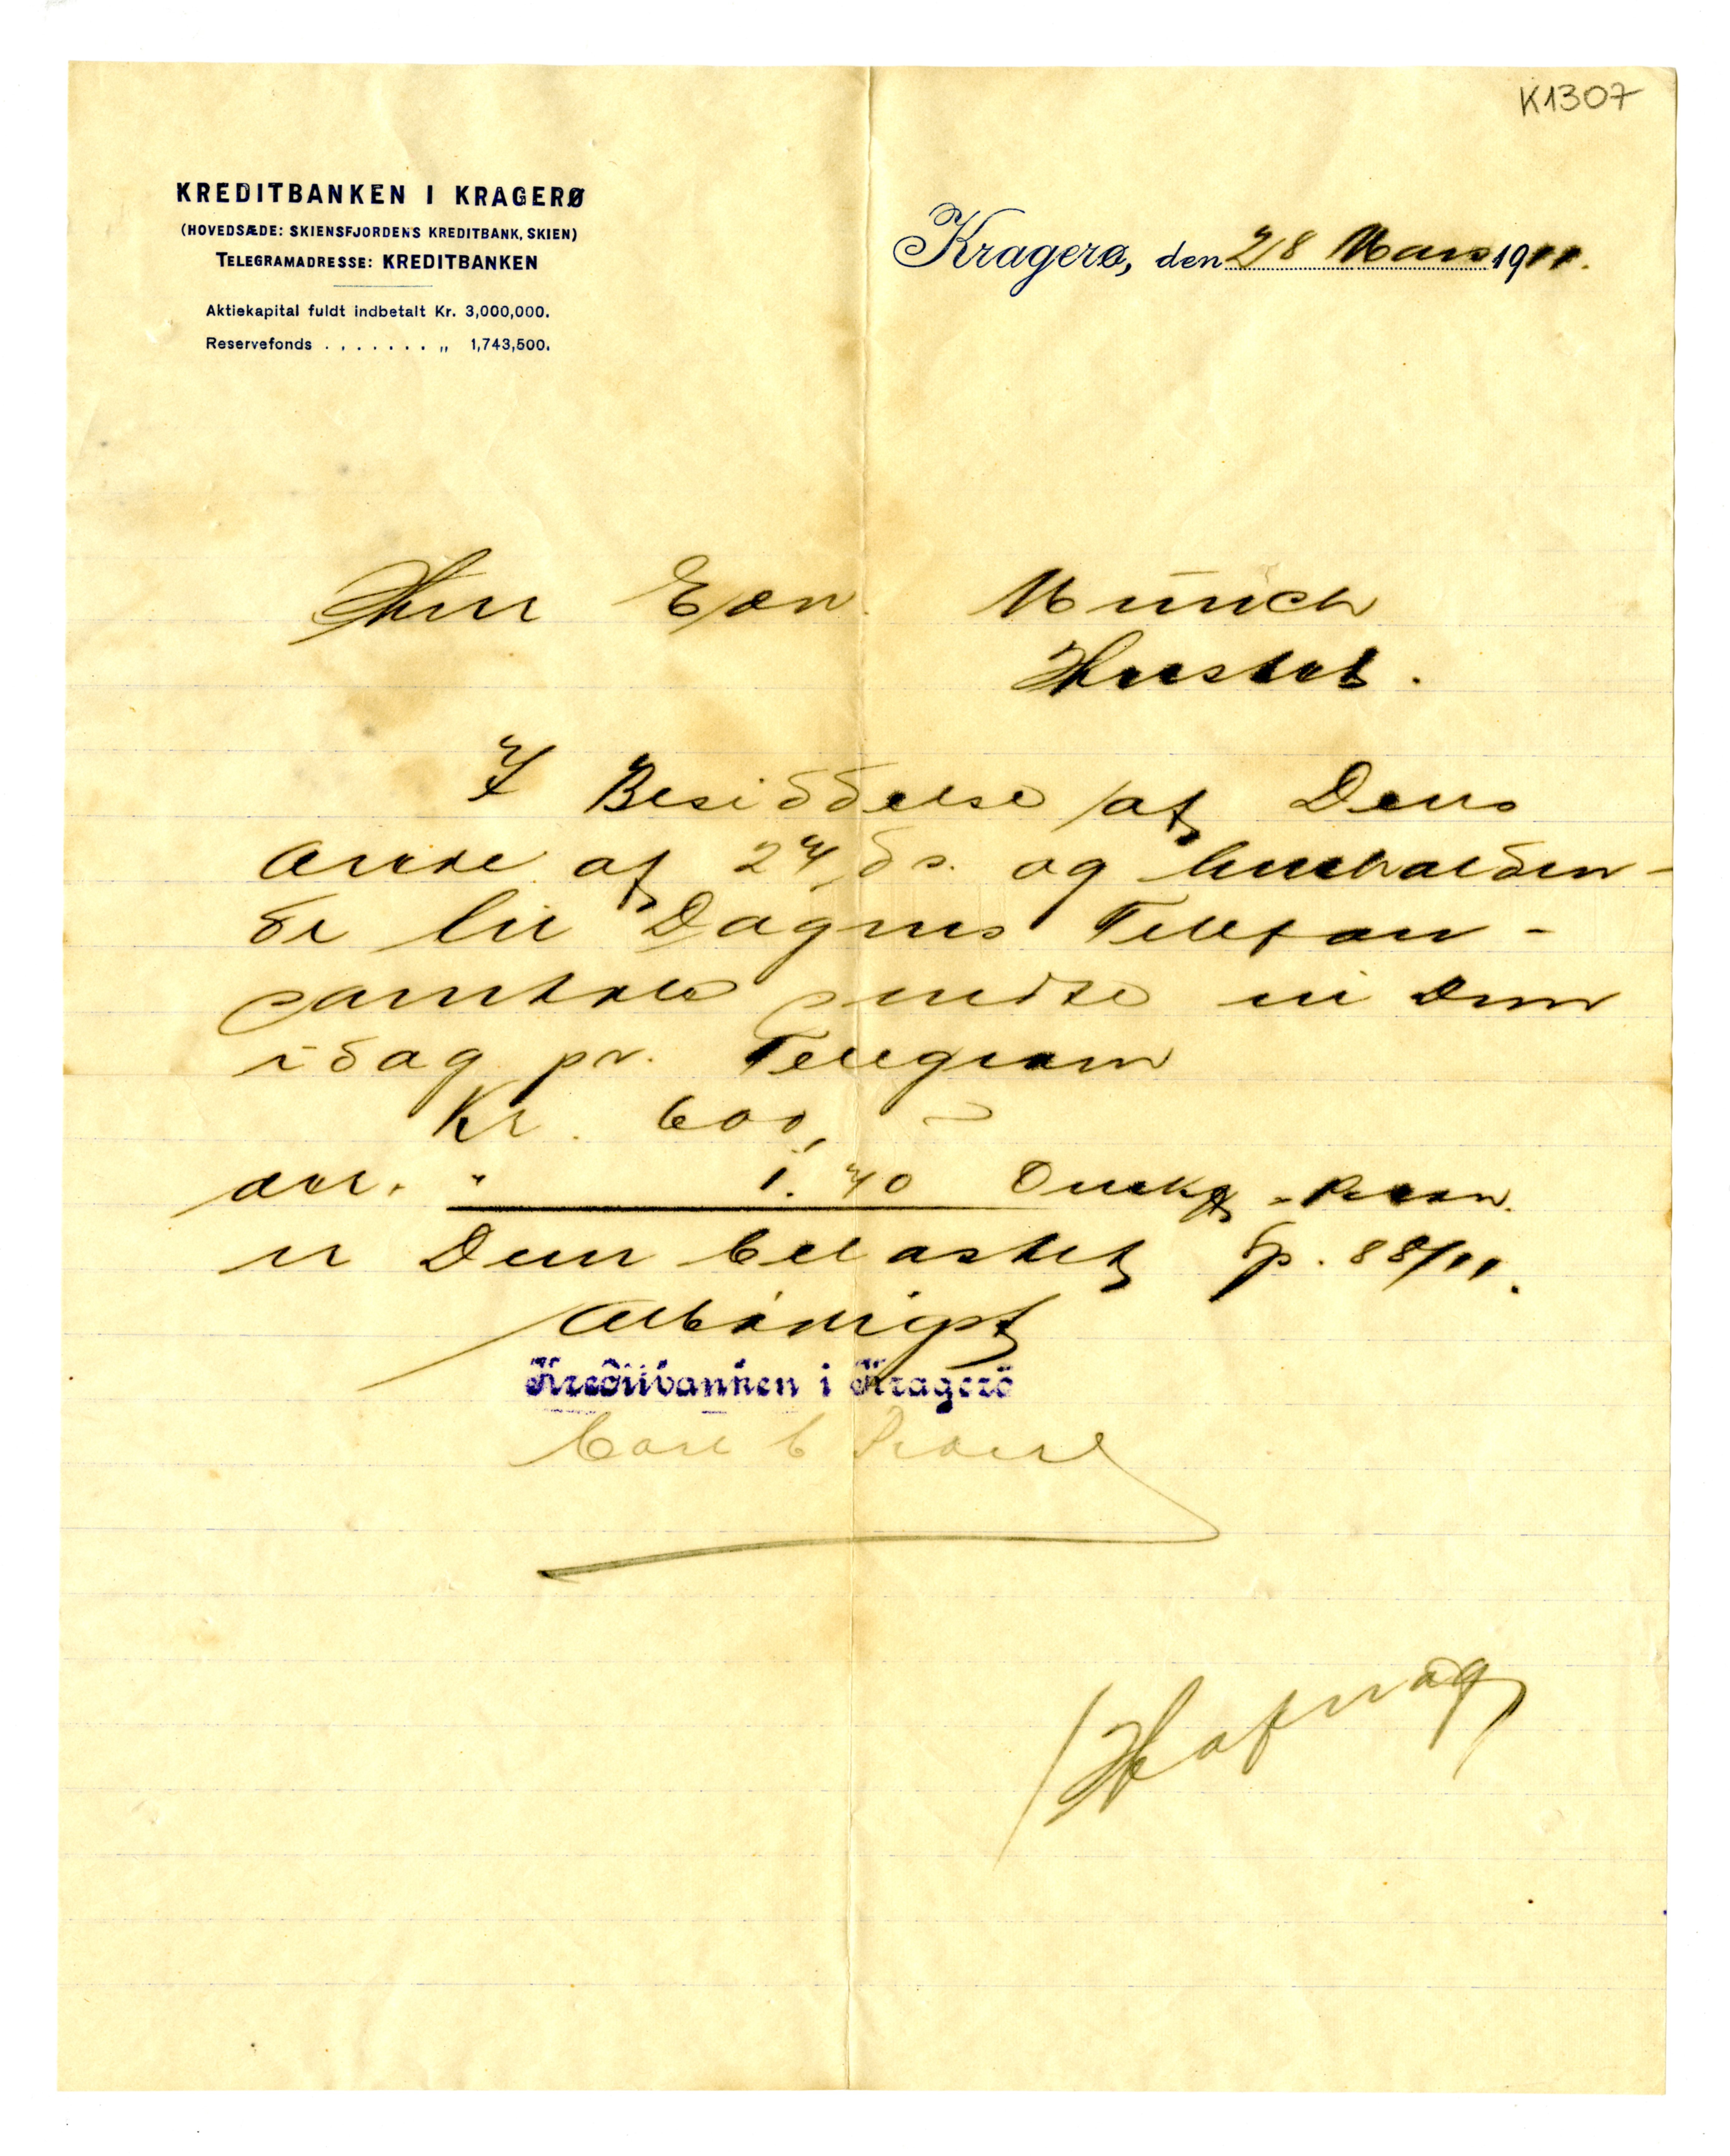 K1307
KREDITBANKEN I KRAGERØ
(HOVEDSÆDE: SKIENSFJORDENS KREDITBANK, SKIEN)
TELEGRAMADRESSE: KREDITBANKEN
Aktiekapital fuldt indbetalt Kr. 3,000,000.
Reservefonds . . . . . . . „ 1,743,500.
Kragerø, den 28 Mars 1911.
Herr Edv. Munch
Hvitsten.
I Besiddelse af Deres
ærede af 24 ds. og henholden-
de til Dagens Telefon-
samtale sendte vi Dem
idag pr. Telegram
Kr. 600,-
" 1.40
er Dem belastet Fp. 88/11.
Ærbødigst
Kreditbanken i Kragerö
Carl